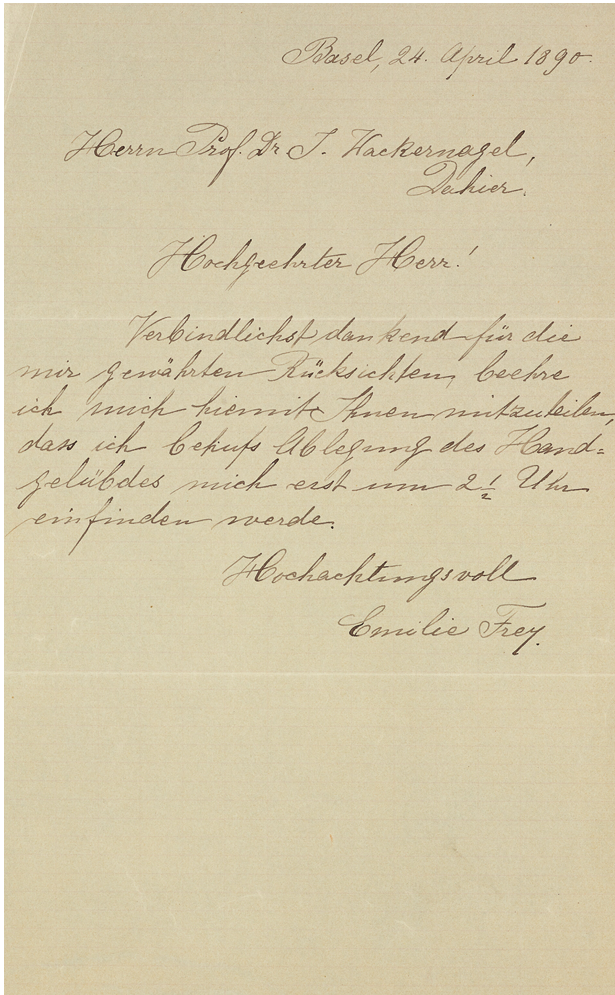 Basel, 24. April 1890.
Herrn Prof. Dr J. Wackernagel,
Dahier.
Hochgeehrter Herr!
Verbindlichst dankend für die
mir gewährten Rücksichten, beehre
ich mich hiemit Ihnen mitzuteilen,
dass ich behufs Ablegung des Hand=
gelübdes mich erst um 2½ Uhr
einfinden werde.
Hochachtungsvoll
Emilie Frey.